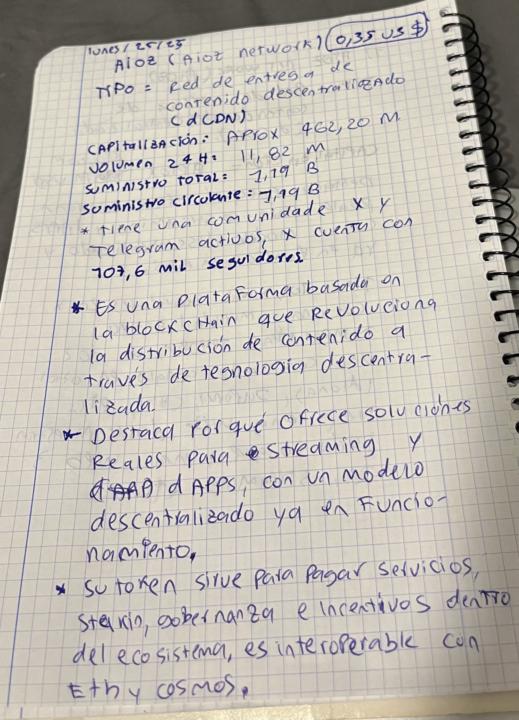 lunes/25/25
Aioz (Aioz network) 0,35 US $
TIPO = Red de entrega de
contenido descentralizado
(dCDN)
CAPitalizAción: Aprox 462,20 M
Volumen 24H: 11,82 M
suministro total: 1,19 B
suministro circulante: 1,19 B
* tiene una comunidade X y
Telegram activos, X cuenta con
107,6 mil seguidores
* Es una Plataforma basada en
la blockcHain que Revoluciona
la distribución de contenido a
través de tegnologia descentra-
lizada.
* Destaca Porqué ofrece soluciones
Reales para Streaming y
dAPPs, con un modelo
descentralizado ya en Funcio-
namiento.
* su token sirve para Pagar servicios,
steakin, gobernanza e Incentivos dentro
del ecosistema, es interoperable con
Eth y cosmos.